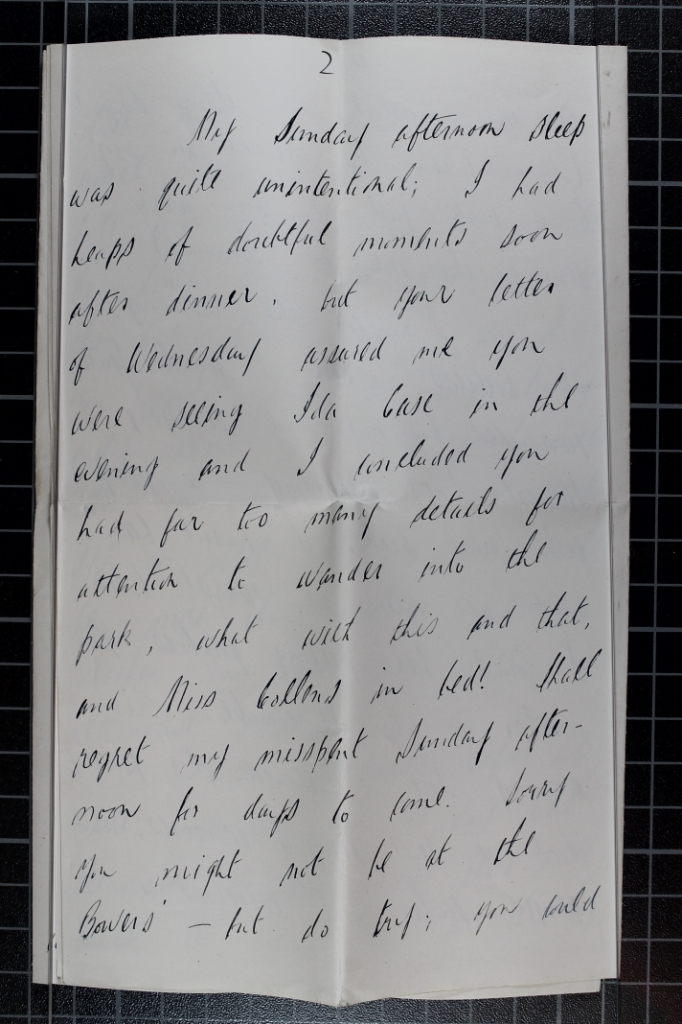 2
My Sunday afternoon sleep
was quite unintentional; I had
heaps of doubtful moments soon
after dinner. but your letter
of Wednesday assured me you
were seeing Ida Case in the
evening and I concluded you
had far too many details for
attention to wander into the
park, what with this and that,
and Miss Collens in bed! Shall
regret my misspent Sunday after-
noon for days to come. Sorry
you might not be at the
Bowers' – but do try; you could